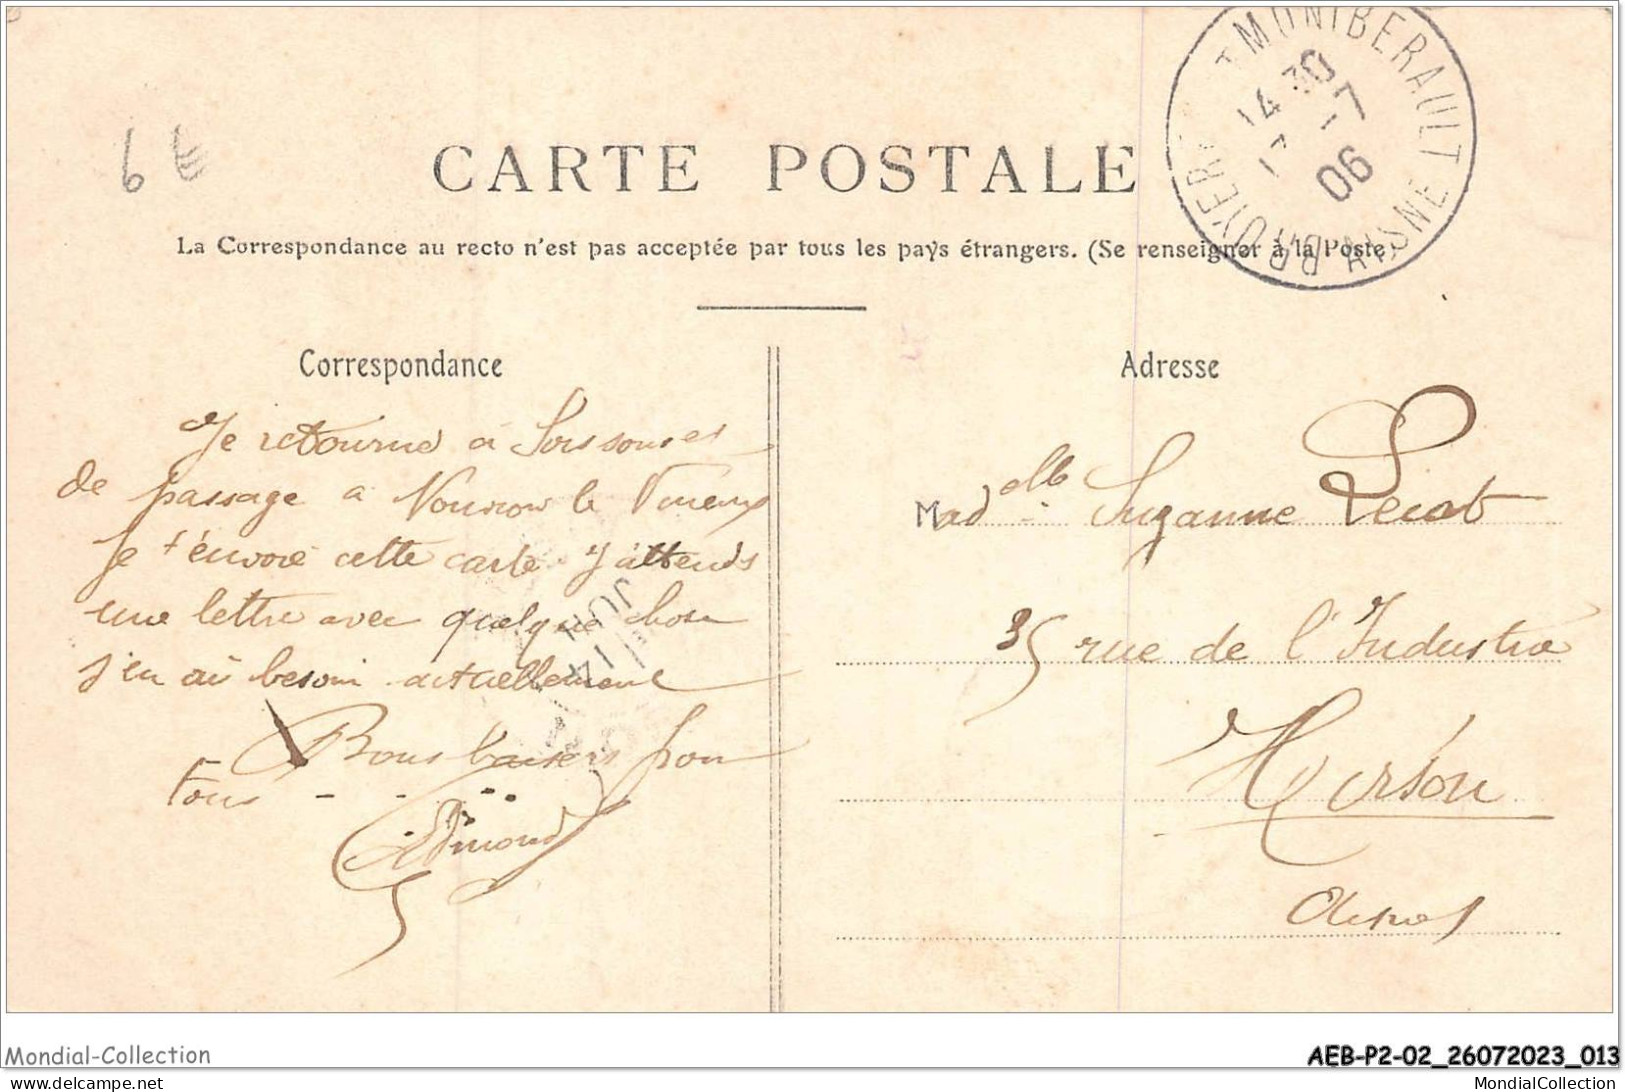 6 E
CARTE POSTALE
La Correspondance au recto n'est pas acceptée par tous les pays étrangers. (Se renseigner à la Poste
BRUYERES ET MONTBERAULT
AISNE
14 30
17 -7
06
Correspondance
Je retourne à Soissons et
de passage a le
Je t'envoie cette carte J'attends
une lettre avec quelque chose
j'en ai besoin actuellement
Bons baisers pour
tous - - ..
Edmond
Adresse
Madelle Suzanne
35 rue de l'Industrie
Hirson
Aisne
Mondial-Collection
AEB-P2-02_26072023_013
www.delcampe.net
MondialCollection